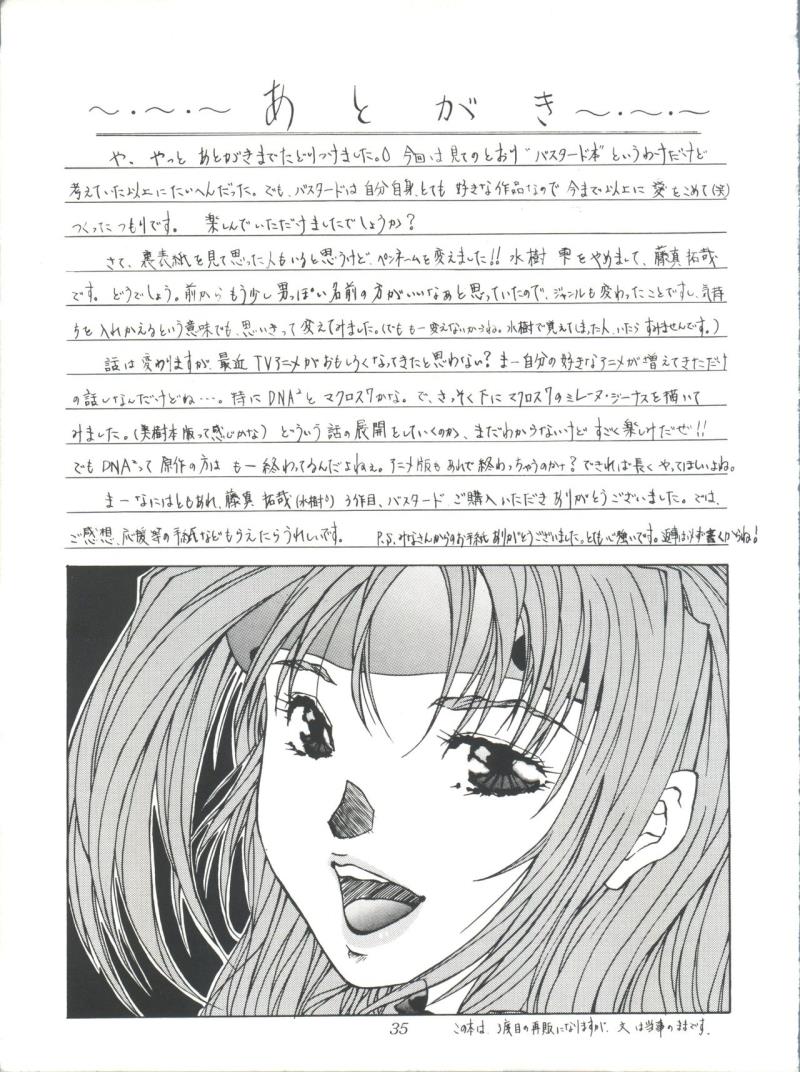 ～・～・～ あとがき ～・～・～
や、やっと あとがきまでたどりつけました。 今回は見てのとおり“バスタード本”というわけだけど
考えていた以上にたいへんだった。でも、バスタードは自分自身、とても 好きな作品なので 今まで以上に 愛をこめて(笑)
つくったつもりです。 楽しんでいただけましたでしょうか？
さて、裏表紙を見て思った人もいると思うけど、ペンネームを変えました!! 水樹 雫をやめまして、藤真 拓哉
です。どうでしょう。前から もう少し男っぽい名前の方がいいなあと思っていたので、ジャンルも変わったことですし、気持
ちを入れかえるという意味でも、思いきって変えてみました。(でも も一変えないからね。水樹で覚えてしまった人、いたら すみませんです。)
話は変わりますが、最近 TVアニメがおもしろくなってきたと思わない？ まー自分の好きなアニメが増えてきただけ
の話しなんだけどね…。特に DNA²と マクロス7かな。で、さっそく下に マクロス7のミレーヌ・ジーナスを描いて
みました。(美樹本版って感じかな) どういう話の展開をしていくのか、まだわからないけど すごく楽しみだぜ!!
でも DNA²って 原作の方は もー終わってるんだよねぇ。アニメ版もあれで終わっちゃうのかな？ できれば長く やってほしいよね。
まーなにはともあれ、藤真 拓哉(水樹より) 3作目、バスタード ご購入いただき ありがとうございました。では、
ご感想、応援等の手紙などもらえたらうれしいです。 P.S. みなさんからのお手紙 ありがとうございました。とても心強いです。返事は必ず書くからね！
35
この本は、3度目の再販になりますが、文は当事のままです。